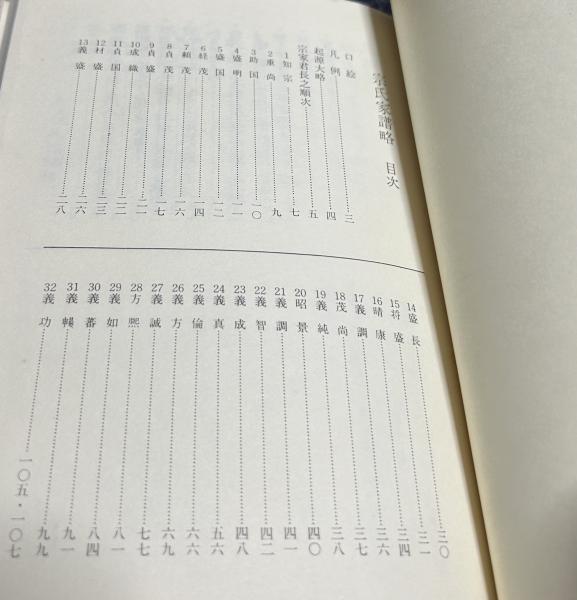 宗氏家譜略　目次
口絵
凡例………三
起源大略………四
宗家君長之順次………五
1知宗………七
2重尚………九
3助国………一〇
4盛明………一一
5盛国………一二
6経茂………一四
7頼茂………一六
8貞茂………一七
9貞盛………二一
10成職………二二
11貞国………二三
12材盛………二六
13義盛………二八
14盛長………三〇
15将盛………三一
16晴康………三四
17義調………三六
18茂尚………三七
19義純………三八
20昭景………四〇
21義調………四一
22義智………四二
23義成………四八
24義真………五六
25義倫………六六
26義方………六九
27義誠………七七
28方熈………八一
29義如………八四
30義蕃………九一
31義暢………九九
32義功………一〇五・一〇七